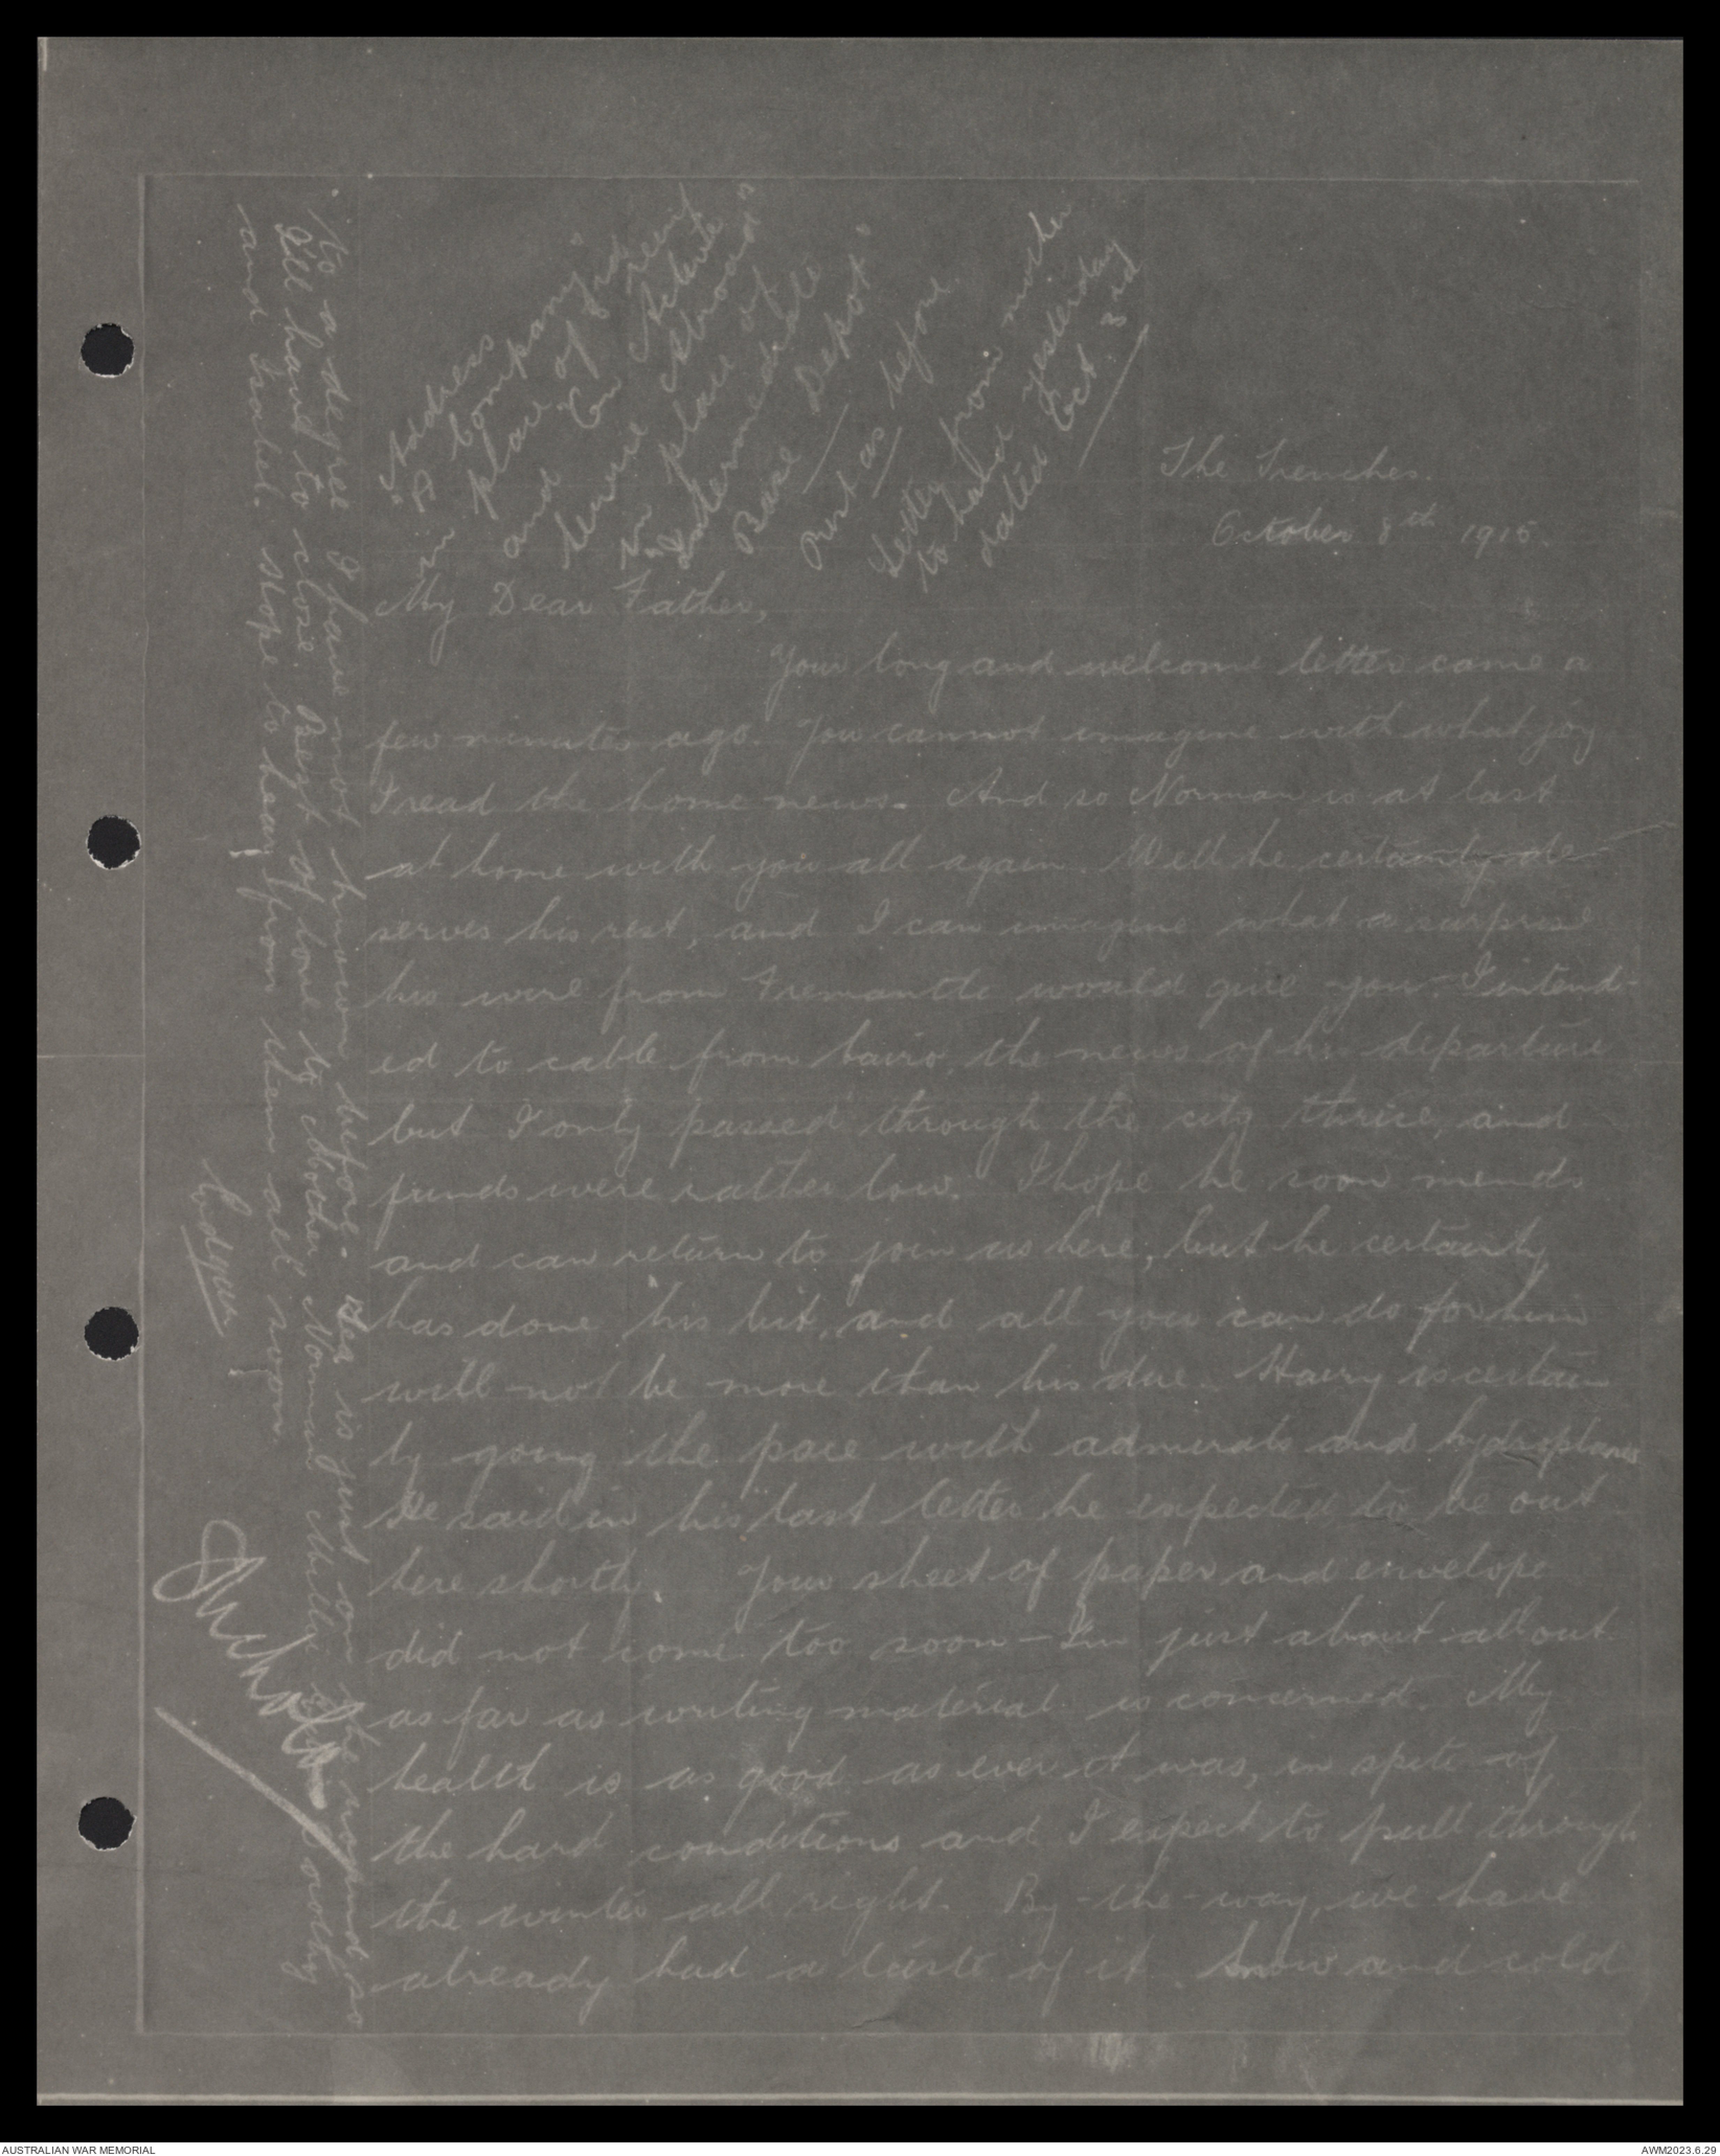 Address
"D Company"
in place of Reint
and "On Active
service Abroad"
in place of
"Intermediate
Base Depot"
Rest as before
Letter from mother
to hand yesterday
dated Oct. 3rd
The Trenches.
October 8th 1915.
My Dear Father,
Your long and welcome letter came a
few minutes ago. You cannot imagine with what joy
I read the home news. And so Norman is at last
at home with you all again. Well he certainly de-
serves his rest, and I can imagine what a surprise
his wire from Fremantle would give you. I intend-
ed to cable from Cairo, the news of his departure
but I only passed through the city thrice, and
funds were rather low. I hope he soon mends
and can return to join us here, but he certainly
has done his bit, and all you can do for him
will not be more than his due. Harry is certain-
ly going the pace with admirals and hydroplanes
He said in his last letter he expected to be out
here shortly. Your sheet of paper and envelope
did not come too soon - I'm just about all out
as far as writing material is concerned. My
health is as good as ever it was, in spite of
the hard conditions and I expect to pull through
the winter all right. By-the-way, we have
already had a taste of it. Snow and cold
to a degree I have not known before. As is just on the around so
I'll have to close. Best of love to Mother Norman
and Isabel. Hope to hear from them all soon.
Edgar